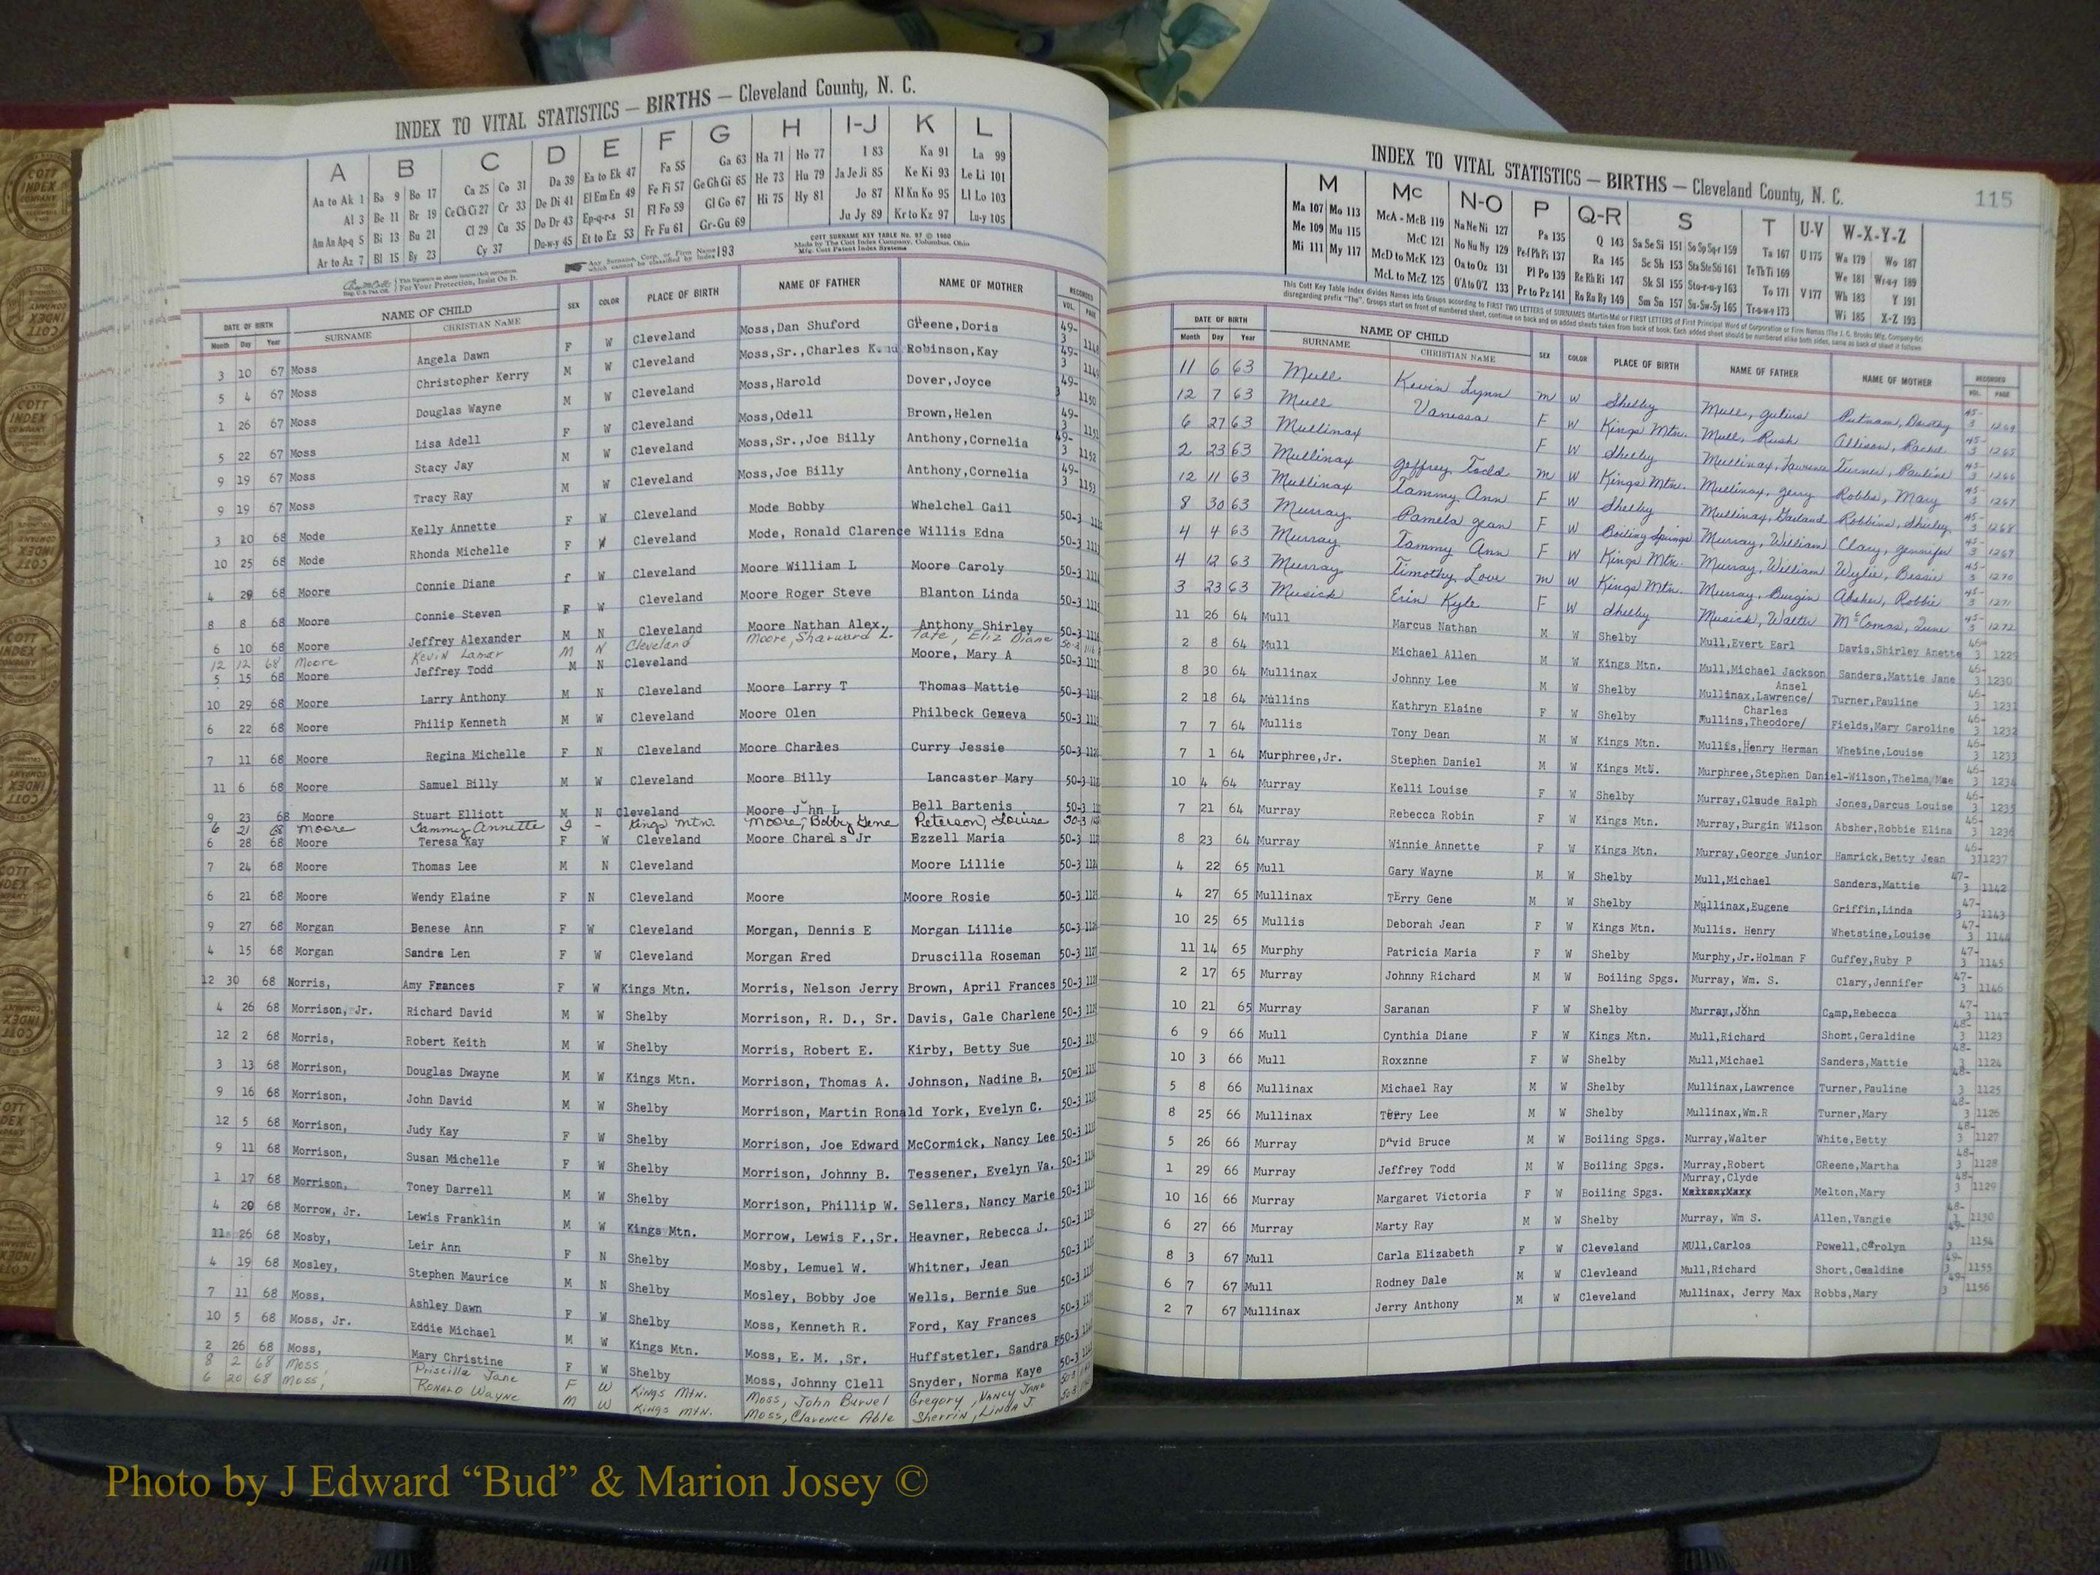 INDEX TO VITAL STATISTICS — BIRTHS — Cleveland County, N. C.
A B C D E F G H I-J K L
Aa to Ak 1 Ba 9 Bo 17 Ca 25 Co 31 Da 39 Ea to Ek 47 Fa 55 Ga 63 Ha 71 Ho 77 I 83 Ka 91 La 99
Al 3 Be 11 Br 19 Ce Ch Ci 27 Cr 33 De Di 41 El Em En 49 Fe Fi 57 Ge Gh Gi 65 He 73 Hu 79 Ja Je Ji 85 Ke Ki 93 Le Li 101
Am An Ap-q 5 Bi 13 Bu 21 Cl 29 Cu 35 Do Dr 43 Ep-q-r-s 51 Fl Fo 59 Gl Go 67 Hi 75 Hy 81 Jo 87 Kl Kn Ko 95 Ll Lo 103
Ar to Az 7 Bl 15 By 23 Cy 37 Du-w-y 45 Et to Ez 53 Fr Fu 61 Gr-Gu 69 Ju Jy 89 Kr to Kz 97 Lu-y 105
COTT SURNAME KEY TABLE No. 97 © 1960
Made by The Cott Index Company, Columbus, Ohio
Any Surname, Corp. or Firm Name which cannot be classified by Index 193
For Your Protection, Insist On It.
DATE OF BIRTH NAME OF CHILD SEX COLOR PLACE OF BIRTH NAME OF FATHER NAME OF MOTHER RECORDED
Month Day Year SURNAME CHRISTIAN NAME VOL. PAGE
3 10 67 Moss Angela Dawn F W Cleveland Moss,Dan Shuford Greene,Doris 49-3 1148
5 4 67 Moss Christopher Kerry M W Cleveland Moss,Sr.,Charles Robinson,Kay 49-3 1149
1 26 67 Moss Douglas Wayne M W Cleveland Moss,Harold Dover,Joyce 49-3 1150
5 22 67 Moss Lisa Adell F W Cleveland Moss,Odell Brown,Helen 49-3 1151
9 19 67 Moss Stacy Jay M W Cleveland Moss,Sr.,Joe Billy Anthony,Cornelia 49-3 1152
9 19 67 Moss Tracy Ray M W Cleveland Moss,Joe Billy Anthony,Cornelia 49-3 1153
3 20 68 Mode Kelly Annette F W Cleveland Mode Bobby Whelchel Gail 50-3
10 25 68 Mode Rhonda Michelle F W Cleveland Mode, Ronald Clarence Willis Edna 50-3
4 29 68 Moore Connie Diane f W Cleveland Moore William L Moore Caroly 50-3
8 8 68 Moore Connie Steven F W Cleveland Moore Roger Steve Blanton Linda 50-3
6 10 68 Moore Jeffrey Alexander M N Cleveland Moore Nathan Alex. Anthony Shirley 50-3
12 12 68 Moore Kevin Lamar M N Cleveland Moore, Sharward L. Tate, Eliz Diane 50-3
5 15 68 Moore Jeffrey Todd M N Cleveland Moore, Mary A 50-3
10 29 68 Moore Larry Anthony M N Cleveland Moore Larry T Thomas Mattie 50-3
6 22 68 Moore Philip Kenneth M W Cleveland Moore Olen Philbeck Geneva 50-3
7 11 68 Moore Regina Michelle F N Cleveland Moore Charles Curry Jessie 50-3
11 6 68 Moore Samuel Billy M W Cleveland Moore Billy Lancaster Mary 50-3
9 23 68 Moore Stuart Elliott M N Cleveland Moore John L Bell Bartenis 50-3
6 21 68 Moore Tammy Annette - Kings Mtn. Moore, Bobby Gene Peterson, Louise 50-3
6 28 68 Moore Teresa Kay F W Cleveland Moore Charels Jr Ezzell Maria 50-3
7 24 68 Moore Thomas Lee M N Cleveland Moore Lillie 50-3
6 21 68 Moore Wendy Elaine F N Cleveland Moore Moore Rosie 50-3
9 27 68 Morgan Benese Ann F W Cleveland Morgan, Dennis E Morgan Lillie 50-3
4 15 68 Morgan Sandra Len F W Cleveland Morgan Fred Druscilla Roseman 50-3
12 30 68 Morris, Amy Frances F W Kings Mtn. Morris, Nelson Jerry Brown, April Frances 50-3
4 26 68 Morrison, Jr. Richard David M W Shelby Morrison, R. D., Sr. Davis, Gale Charlene 50-3
12 2 68 Morris, Robert Keith M W Shelby Morris, Robert E. Kirby, Betty Sue 50-3
3 13 68 Morrison, Douglas Dwayne M W Kings Mtn. Morrison, Thomas A. Johnson, Nadine B. 50-3
9 16 68 Morrison, John David M W Shelby Morrison, Martin Ronald York, Evelyn C. 50-3
12 5 68 Morrison, Judy Kay F W Shelby Morrison, Joe Edward McCormick, Nancy Lee 50-3
9 11 68 Morrison, Susan Michelle F W Shelby Morrison, Johnny B. Tessener, Evelyn Va. 50-3
1 17 68 Morrison, Toney Darrell M W Shelby Morrison, Phillip W. Sellers, Nancy Marie 50-3
4 20 68 Morrow, Jr. Lewis Franklin M W Kings Mtn. Morrow, Lewis F.,Sr. Heavner, Rebecca J. 50-3
11 26 68 Mosby, Leir Ann F N Shelby Mosby, Lemuel W. Whitner, Jean 50-3
4 19 68 Mosley, Stephen Maurice M N Shelby Mosley, Bobby Joe Wells, Bernie Sue 50-3
7 11 68 Moss, Ashley Dawn F W Shelby Moss, Kenneth R. Ford, Kay Frances 50-3
10 5 68 Moss, Jr. Eddie Michael M W Kings Mtn. Moss, E. M. ,Sr. Huffstetler, Sandra 50-3
2 26 68 Moss, Mary Christine F W Shelby Moss, Johnny Clell Snyder, Norma Kaye 50-3
8 2 68 Moss Priscilla Jane F W Kings Mtn. Moss, John Buruel Gregory, Nancy Jane 50-3
6 20 68 Moss, Ronald Wayne M W Kings Mtn. Moss, Clarence Able Sherrin, Linda J. 50-3
INDEX TO VITAL STATISTICS — BIRTHS — Cleveland County, N. C. 115
M Mc N-O P Q-R S T U-V W-X-Y-Z
Ma 107 Mo 113 McA - McB 119 Na Ne Ni 127 Pa 135 Q 143 Sa Se Si 151 So Sp Sq-r 159 Ta 167 U 175 Wa 179 Wo 187
Me 109 Mu 115 McC 121 No Nu Ny 129 Pe Pf Ph Pi 137 Ra 145 Sc Sh 153 Sta Ste Sti 161 Te Th Ti 169 We 181 Wr-u-y 189
Mi 111 My 117 McD to McK 123 Oa to Oz 131 Pl Po 139 Re Rh Ri 147 Sk Sl 155 Sto-r-u-y 163 To 171 V 177 Wh 183 Y 191
McL to McZ 125 O'A to O'Z 133 Pr to Pz 141 Ro Ru Ry 149 Sm Sn 157 Su-Sw-Sy 165 Tr-u-w-y 173 Wi 185 X-Z 193
DATE OF BIRTH NAME OF CHILD SEX COLOR PLACE OF BIRTH NAME OF FATHER NAME OF MOTHER RECORDED
Month Day Year SURNAME CHRISTIAN NAME VOL. PAGE
11 6 63 Mull Kevin Lynn M W Shelby Mull, Julius Putnam, Dorothy 45-3 1264
12 7 63 Mull Vanessa F W Kings Mtn. Mull, Rush Allison, Rachel 45-3 1265
6 27 63 Mullinax F W Shelby Mullinax, Lawrence Turner, Pauline 45-3 1266
2 23 63 Mullinax Jeffrey Todd M W Kings Mtn. Mullinax, Jerry Robbs, Mary 45-3 1267
12 11 63 Mullinax Tammy Ann F W Shelby Mullinax, Garland Robbins, Shirley 45-3 1268
8 30 63 Murray Pamela Jean F W Boiling Springs Murray, William Clary, Jennifer 45-3 1269
4 4 63 Murray Tammy Ann F W Kings Mtn. Murray, William Wylie, Bessie 45-3 1270
4 12 63 Murray Timothy Low M W Kings Mtn. Murray, Burgin Absher, Robbie 45-3 1271
3 23 63 Musick Erin Kyle F W Shelby Musick, Walter McComas, June 45-3 1272
11 26 64 Mull Marcus Nathan M W Shelby Mull,Evert Earl Davis,Shirley Anette 46-3 1229
2 8 64 Mull Michael Allen M W Kings Mtn. Mull,Michael Jackson Sanders,Mattie Jane 46-3 1230
8 30 64 Mullinax Johnny Lee M W Shelby Mullinax,Lawrence/ Ansel Turner,Pauline 46-3 1231
2 18 64 Mullins Kathryn Elaine F W Shelby Mullins,Theodore/ Charles Fields,Mary Caroline 46-3 1232
7 7 64 Mullis Tony Dean M W Kings Mtn. Mullis,Henry Herman Whetine,Louise 46-3 1233
7 1 64 Murphree,Jr. Stephen Daniel M W Kings Mtn. Murphree,Stephen Daniel-Wilson,Thelma Mae 46-3 1234
10 4 64 Murray Kelli Louise F W Shelby Murray,Claude Ralph Jones,Darcus Louise 46-3 1235
7 21 64 Murray Rebecca Robin F W Kings Mtn. Murray,Burgin Wilson Absher,Robbie Elina 46-3 1236
8 23 64 Murray Winnie Annette F W Kings Mtn. Murray,George Junior Hamrick,Betty Jean 46-3 1237
4 22 65 Mull Gary Wayne M W Shelby Mull,Michael Sanders,Mattie 47-3 1142
4 27 65 Mullinax Terry Gene M W Shelby Mullinax,Eugene Griffin,Linda 47-3 1143
10 25 65 Mullis Deborah Jean F W Kings Mtn. Mullis. Henry Whetstine,Louise 47-3 1144
11 14 65 Murphy Patricia Maria F W Shelby Murphy,Jr.Holman F Guffey,Ruby P 47-3 1145
2 17 65 Murray Johnny Richard M W Boiling Spgs. Murray, Wm. S. Clary,Jennifer 47-3 1146
10 21 65 Murray Saranan F W Shelby Murray,John Camp,Rebecca 47-3 1147
6 9 66 Mull Cynthia Diane F W Kings Mtn. Mull,Richard Short,Geraldine 48-3 1123
10 3 66 Mull Roxznne F W Shelby Mull,Michael Sanders,Mattie 48-3 1124
5 8 66 Mullinax Michael Ray M W Shelby Mullinax,Lawrence Turner,Pauline 48-3 1125
8 25 66 Mullinax Terry Lee M W Shelby Mullinax,Wm.R Turner,Mary 48-3 1126
5 26 66 Murray David Bruce M W Boiling Spgs. Murray,Walter White,Betty 48-3 1127
1 29 66 Murray Jeffrey Todd M W Boiling Spgs. Murray,Robert GReene,Martha 48-3 1128
10 16 66 Murray Margaret Victoria F W Boiling Spgs. Murray,Clyde Melton,Mary 48-3 1129
6 27 66 Murray Marty Ray M W Shelby Murray, Wm S. Allen,Vangie 48-3 1130
8 3 67 Mull Carla Elizabeth F W Cleveland MUll,Carlos Powell,Carolyn 49-3 1154
6 7 67 Mull Rodney Dale M W Clevleand Mull,Richard Short,Gealdine 49-3 1155
2 7 67 Mullinax Jerry Anthony M W Cleveland Mullinax, Jerry Max Robbs,Mary 49-3 1156
Photo by J Edward “Bud” & Marion Josey ©